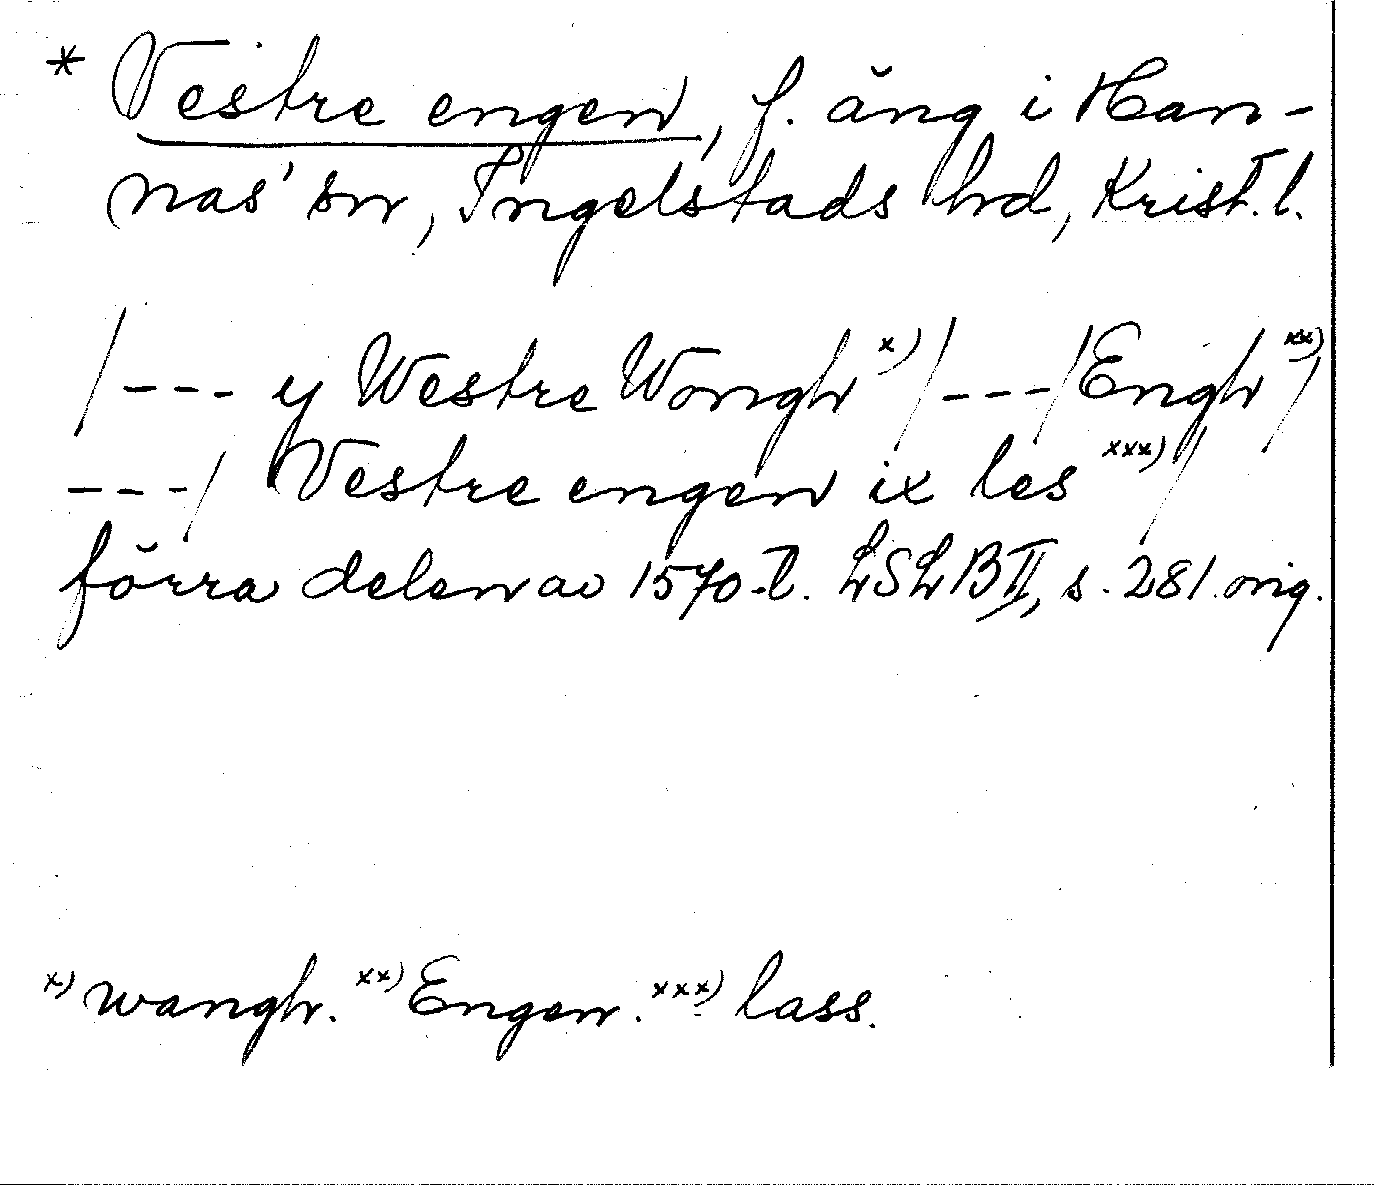 * Vestre engen, f. äng i Ham-
nas' sn, Ingelstads hrd, Krist. l.
/--- y Westre Wongh x)/---/Engh xx)/
---/ Vestre engen ix les xxx)/
förra delen av 1570-t. LSLB II, s. 281. orig.
x) wangh. xx) Engen. xxx) lass.